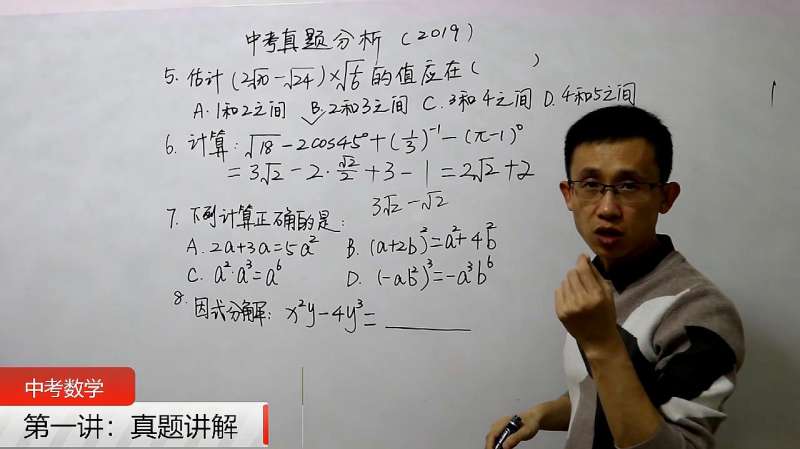 中考真题分析（2019）
5. 估计 (2√30 - √24) × √(1/6) 的值应在（ ）
A. 1和2之间 B. 2和3之间 C. 3和4之间 D. 4和5之间
6. 计算：√18 - 2cos45° + (1/3)⁻¹ - (π-1)⁰
= 3√2 - 2·√2/2 + 3 - 1 = 2√2 + 2
3√2 - √2
7. 下列计算正确的是：
A. 2a+3a=5a² B. (a+2b)²=a²+4b²
C. a²·a³=a⁶ D. (-ab²)³=-a³b⁶
8. 因式分解：x²y-4y³=______
中考数学
第一讲：真题讲解